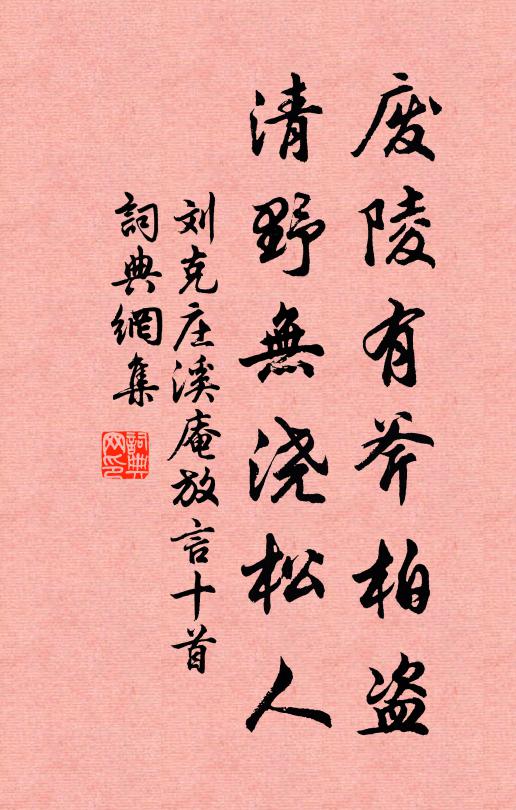 废陵有斧柏盗
清野無浇松人
刘克庄溪庵放言十首
詞典網集
詞典
网印